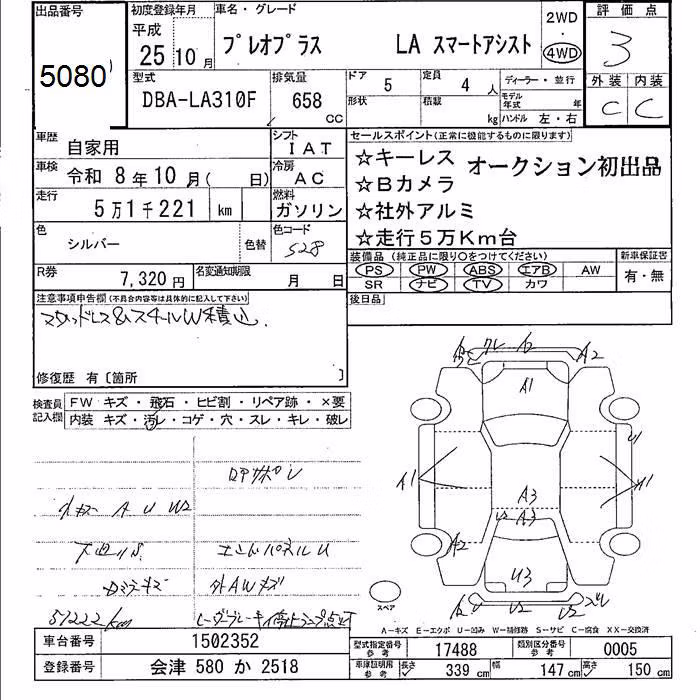 出品番号
5080
初度登録年月
平成
25 10月
車名・グレード
プレオプラス LA スマートアシスト
2WD
・
4WD
評価点
3
型式
DBA-LA310F
排気量
658
CC
ドア
5
定員
4 人
形状
積載
kg
ディーラー・並行
モデル年式 年
ハンドル 左・右
外装 内装
C C
車歴
自家用
シフト
IAT
車検
令和 8年 10月( 日)
冷房
AC
走行
5万1千221 km
燃料
ガソリン
色
シルバー
色替
色コード
S28
R券
7,320円
名変通知期限
月 日
セールスポイント(正常に機能するものに限ります)
☆キーレス オークション初出品
☆Bカメラ
☆社外アルミ
☆走行5万Km台
装備品 (純正品に限り○をつけてください)
PS PW ABS エアB AW
SR ナビ TV カワ
新車保証書
有・無
後日品
注意事項申告欄(不具合内容等は具体的に記入して下さい)
スタッドレス&スチールW積込.
修復歴 有〔箇所 〕
検査員記入欄
FW キズ・飛石・ヒビ割・リペア跡・×要
内装 キズ・汚レ・コゲ・穴・スレ・キレ・破レ
A U W2
下廻リS
エンドパネルU
外AWキズ
51222km
A2
A2
A1
A1
A1
U
A3
U2 A3
A2
U3
U2
スペア
A-キズ E-エクボ U-凹み W-補修跡 S-サビ C-腐食 XX-交換済
車台番号
1502352
登録番号
会津 580 か 2518
型式指定番号
参考
17488
類別区分番号
参考
0005
車庫証明用
参考
長さ
339 cm
幅
147 cm
高さ
150 cm